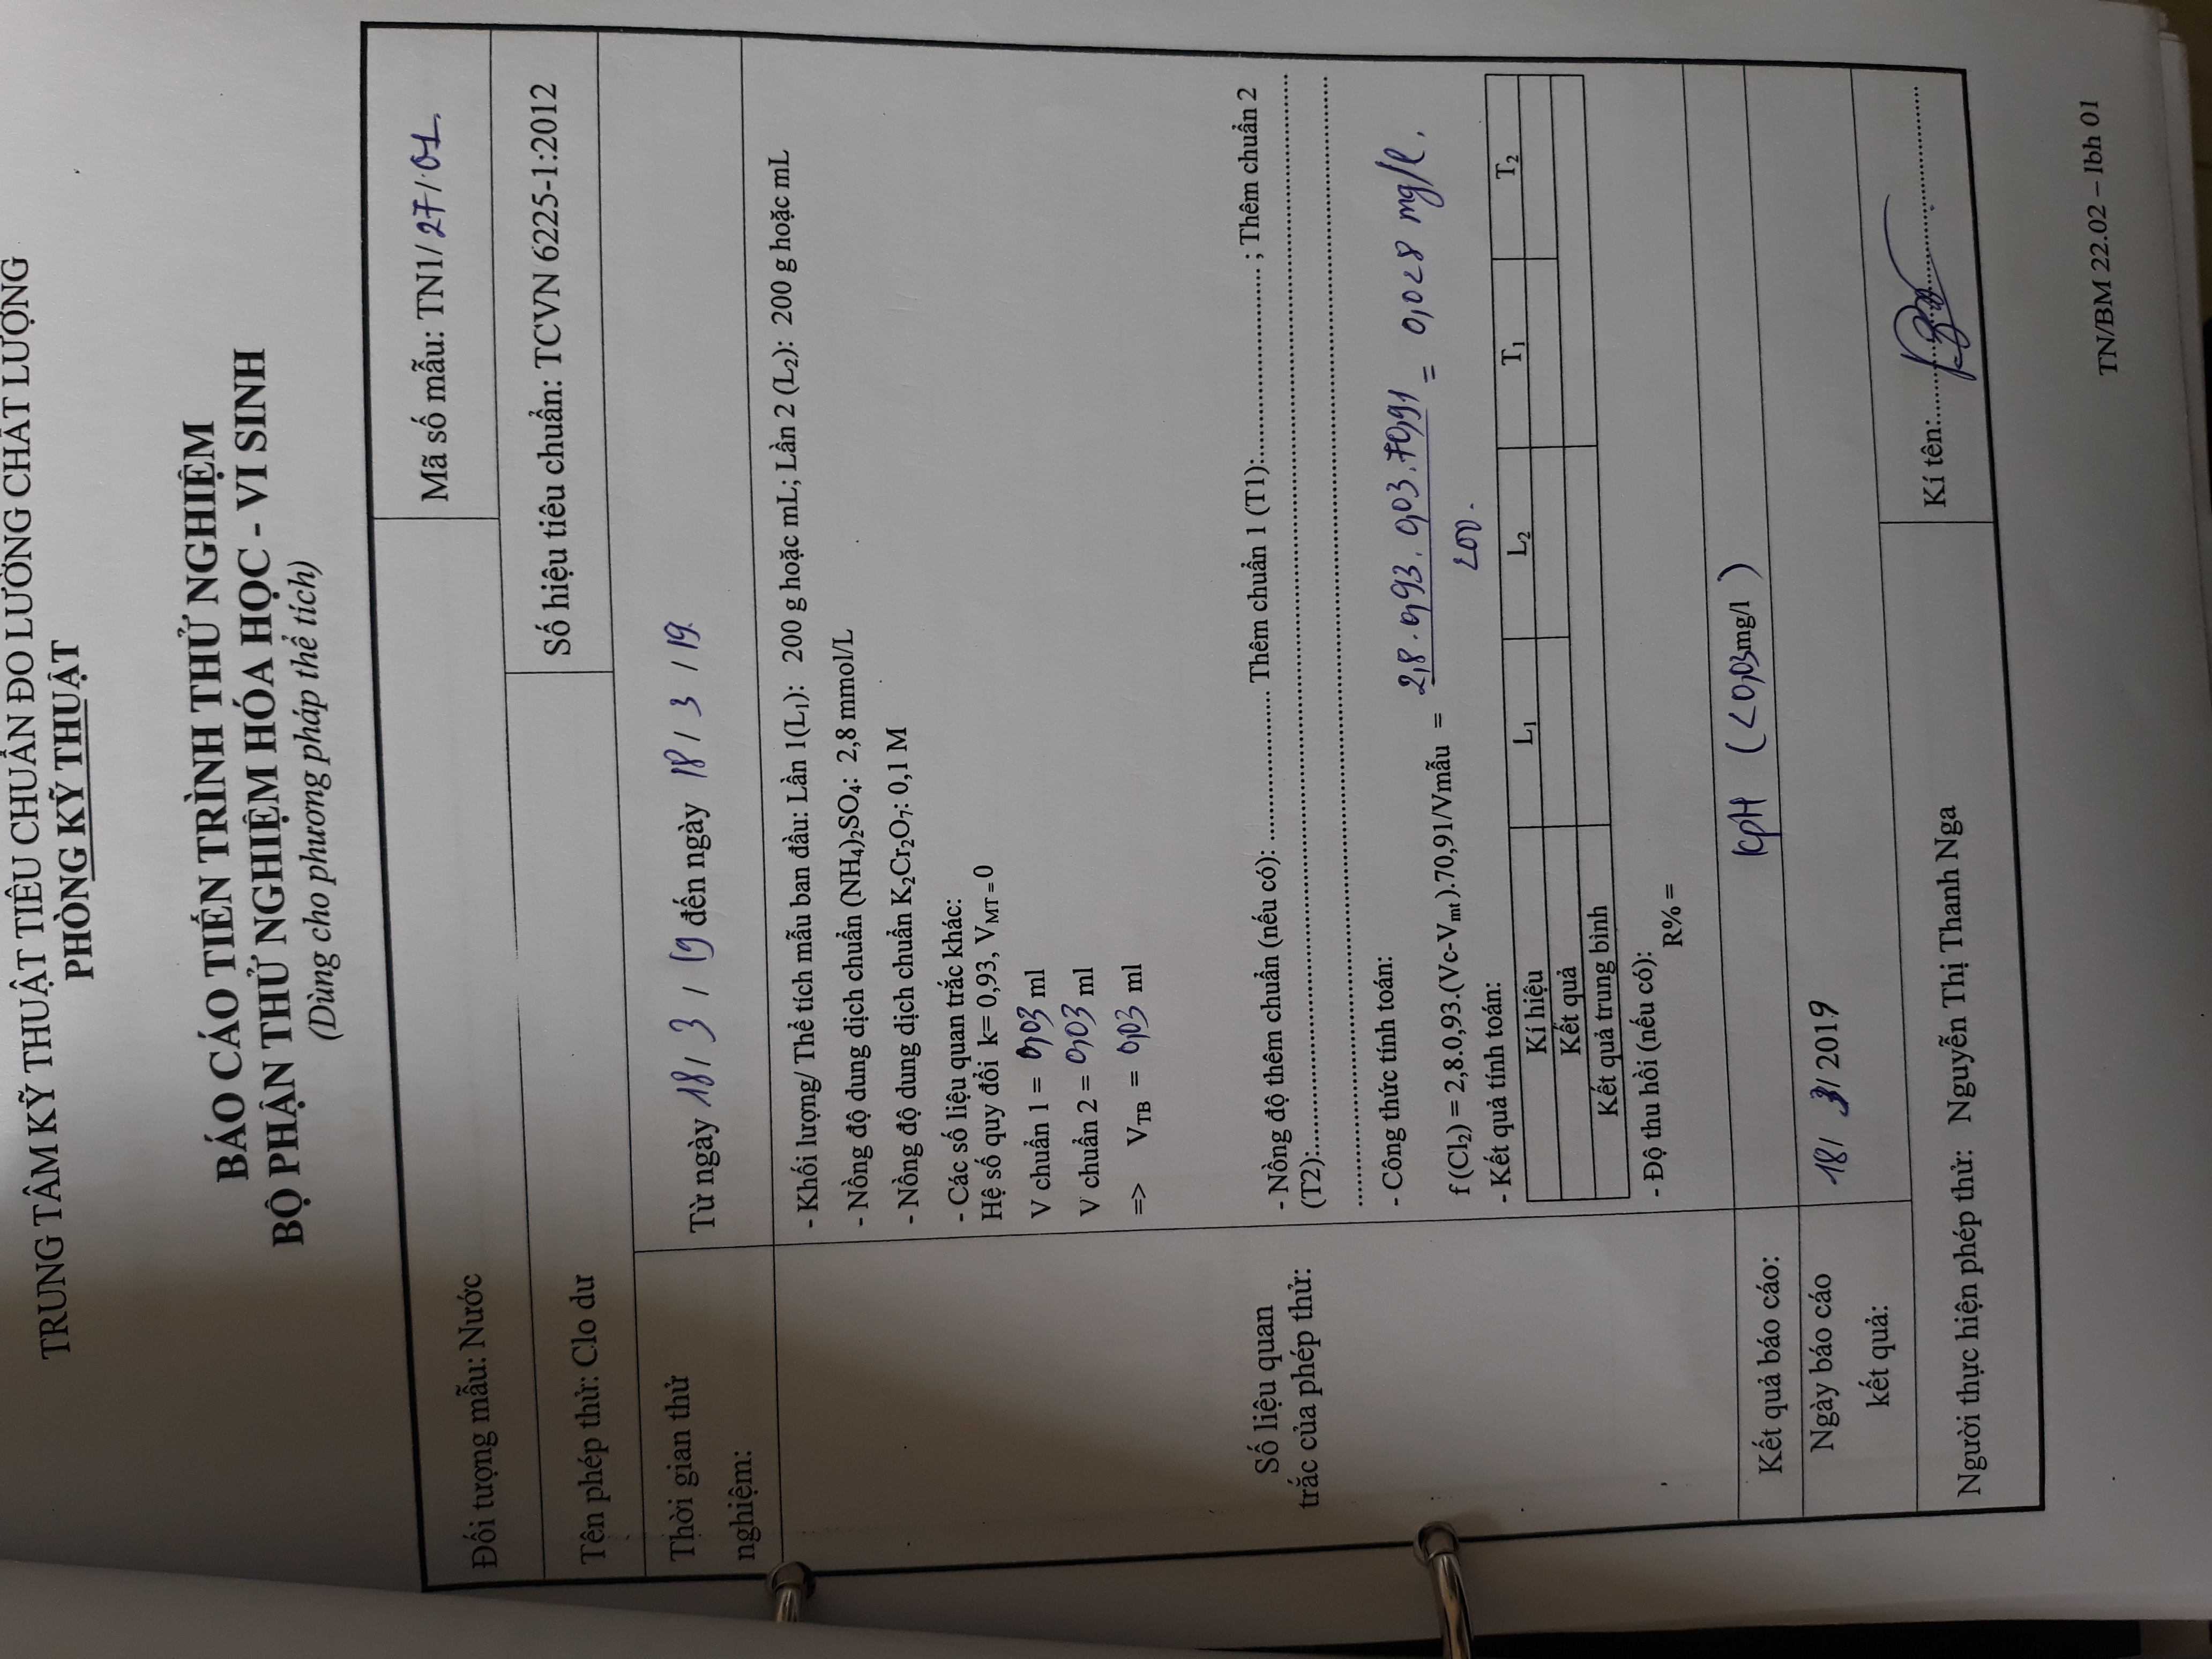 TRUNG TÂM KỸ THUẬT TIÊU CHUẨN ĐO LƯỜNG CHẤT LƯỢNG
PHÒNG KỸ THUẬT
BÁO CÁO TIẾN TRÌNH THỬ NGHIỆM
BỘ PHẬN THỬ NGHIỆM HÓA HỌC - VI SINH
(Dùng cho phương pháp thể tích)
Đối tượng mẫu: Nước
Mã số mẫu: TN1/27/01
Tên phép thử: Clo dư
Số hiệu tiêu chuẩn: TCVN 6225-1:2012
Thời gian thử
nghiệm:
Từ ngày 18/ 3 / 19 đến ngày 18 / 3 / 19.
Số liệu quan
trắc của phép thử:
- Khối lượng/ Thể tích mẫu ban đầu: Lần 1(L₁): 200 g hoặc mL; Lần 2 (L₂): 200 g hoặc mL
- Nồng độ dung dịch chuẩn (NH₄)₂SO₄: 2,8 mmol/L
- Nồng độ dung dịch chuẩn K₂Cr₂O₇: 0,1 M
- Các số liệu quan trắc khác:
Hệ số quy đổi k= 0,93, V_MT = 0
V chuẩn 1 = 0,03 ml
V chuẩn 2 = 0,03 ml
=> V_TB = 0,03 ml
- Nồng độ thêm chuẩn (nếu có): ...................... Thêm chuẩn 1 (T1):............................ ; Thêm chuẩn 2
(T2):....................................................................
....................................................................
- Công thức tính toán:
f (Cl₂) = 2,8.0,93.(Vc-V_mt).70,91/Vmẫu = 2,8.0,93.0,03.70,91 / 200. = 0,028 mg/l.
- Kết quả tính toán:
Kí hiệu L₁ L₂ T₁ T₂
Kết quả
Kết quả trung bình
- Độ thu hồi (nếu có):
R% =
Kết quả báo cáo: KpH (<0,03mg/l )
Ngày báo cáo
kết quả:
18/ 3/ 2019
Người thực hiện phép thử: Nguyễn Thị Thanh Nga
Kí tên:............................
TN/BM 22.02 – lbh 01